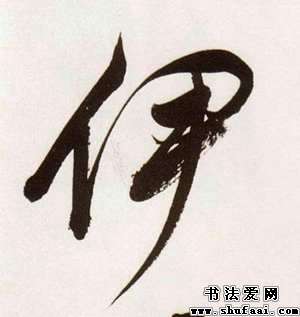 伊
书法爱网
www.shufaai.com